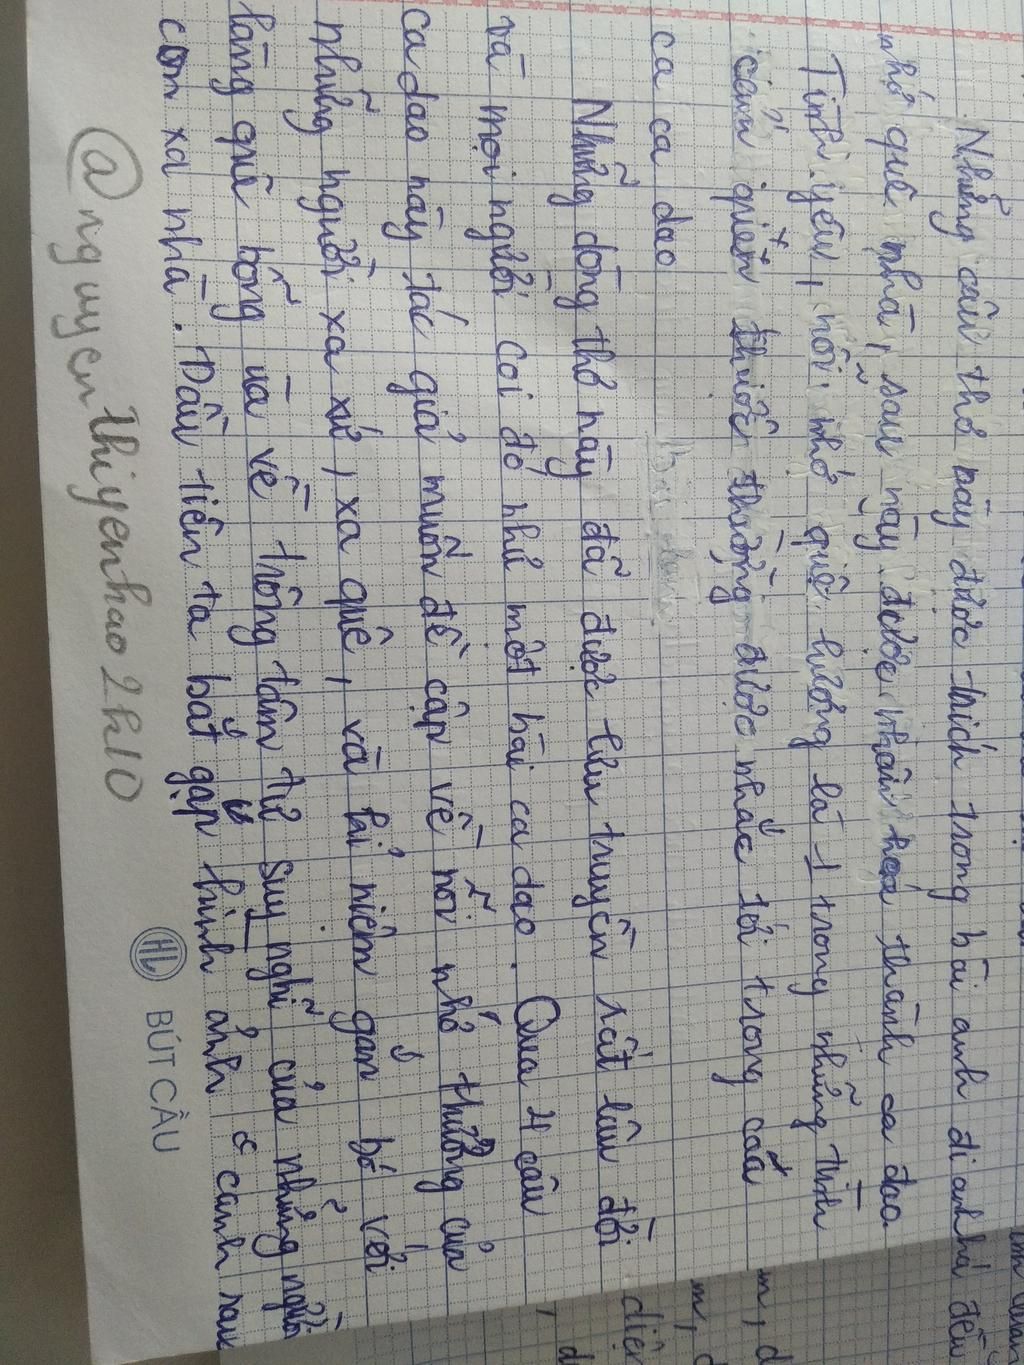 Những câu thơ này được trích trong bài anh đi anh nhớ đến
nhớ quê nhà, sau này được nhân hoá thành ca dao
Tình yêu, nỗi nhớ quê hương là 1 trong những tình
cảm quen thuộc thường được nhắc tới trong các
ca ca dao
Những dòng thơ này đã được lưu truyền rất lâu đời
và mọi người coi đó như một bài ca dao. Qua 4 câu
ca dao này tác giả muốn đề cập về nỗi nhớ thương của
những người xa xứ, xa quê, và kỉ niệm gắn bó với
làng quê bỗng và về trông tâm tư suy nghĩ của những người
con xa nhà. Đầu tiên ta bắt gặp hình ảnh canh rau
@nguyenthiyenhao2k10
HL BÚT CẦU